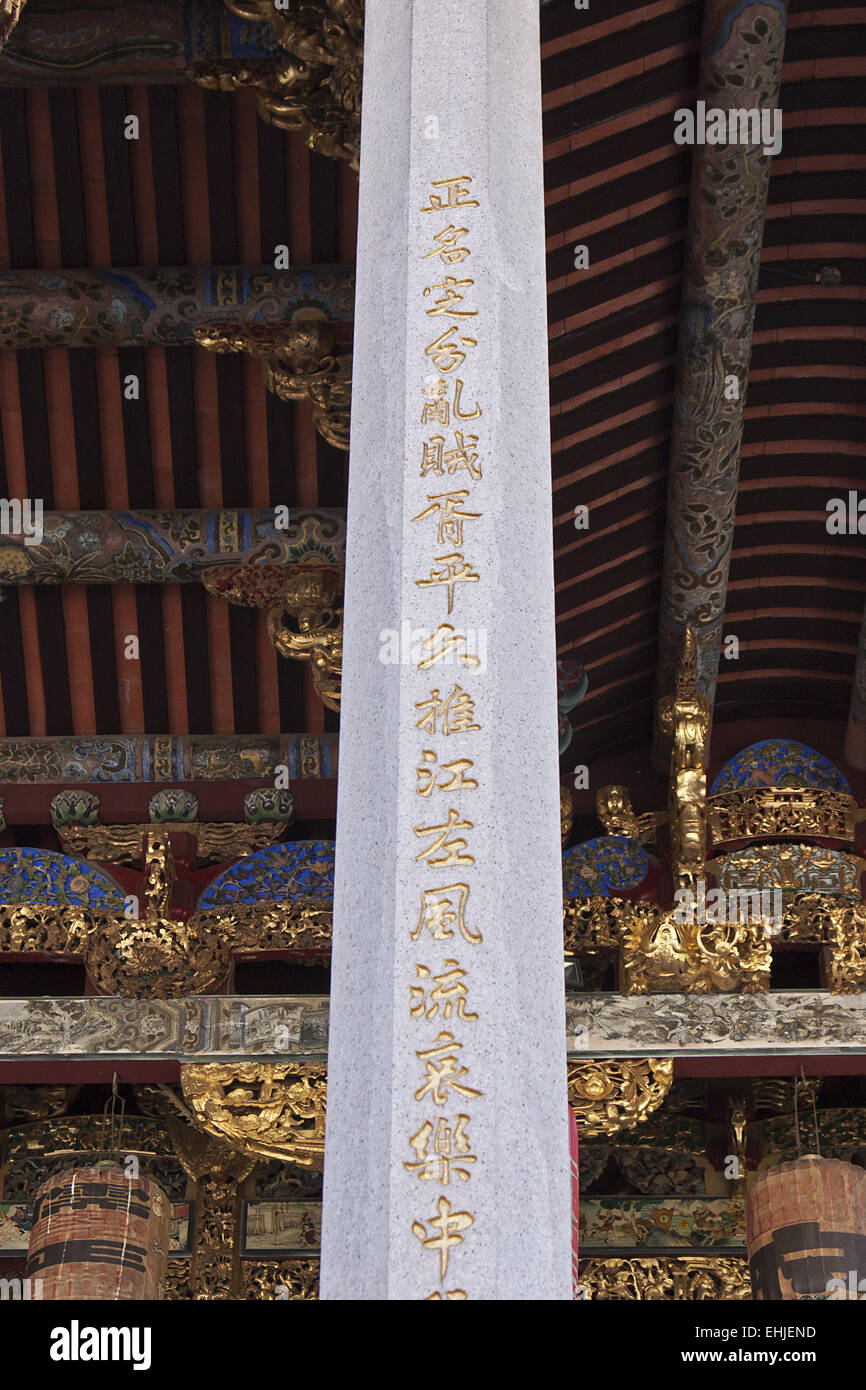 正名定分亂賊胥平久推江左風流哀樂中
alamy stock photo
EHJEND
www.alamy.com